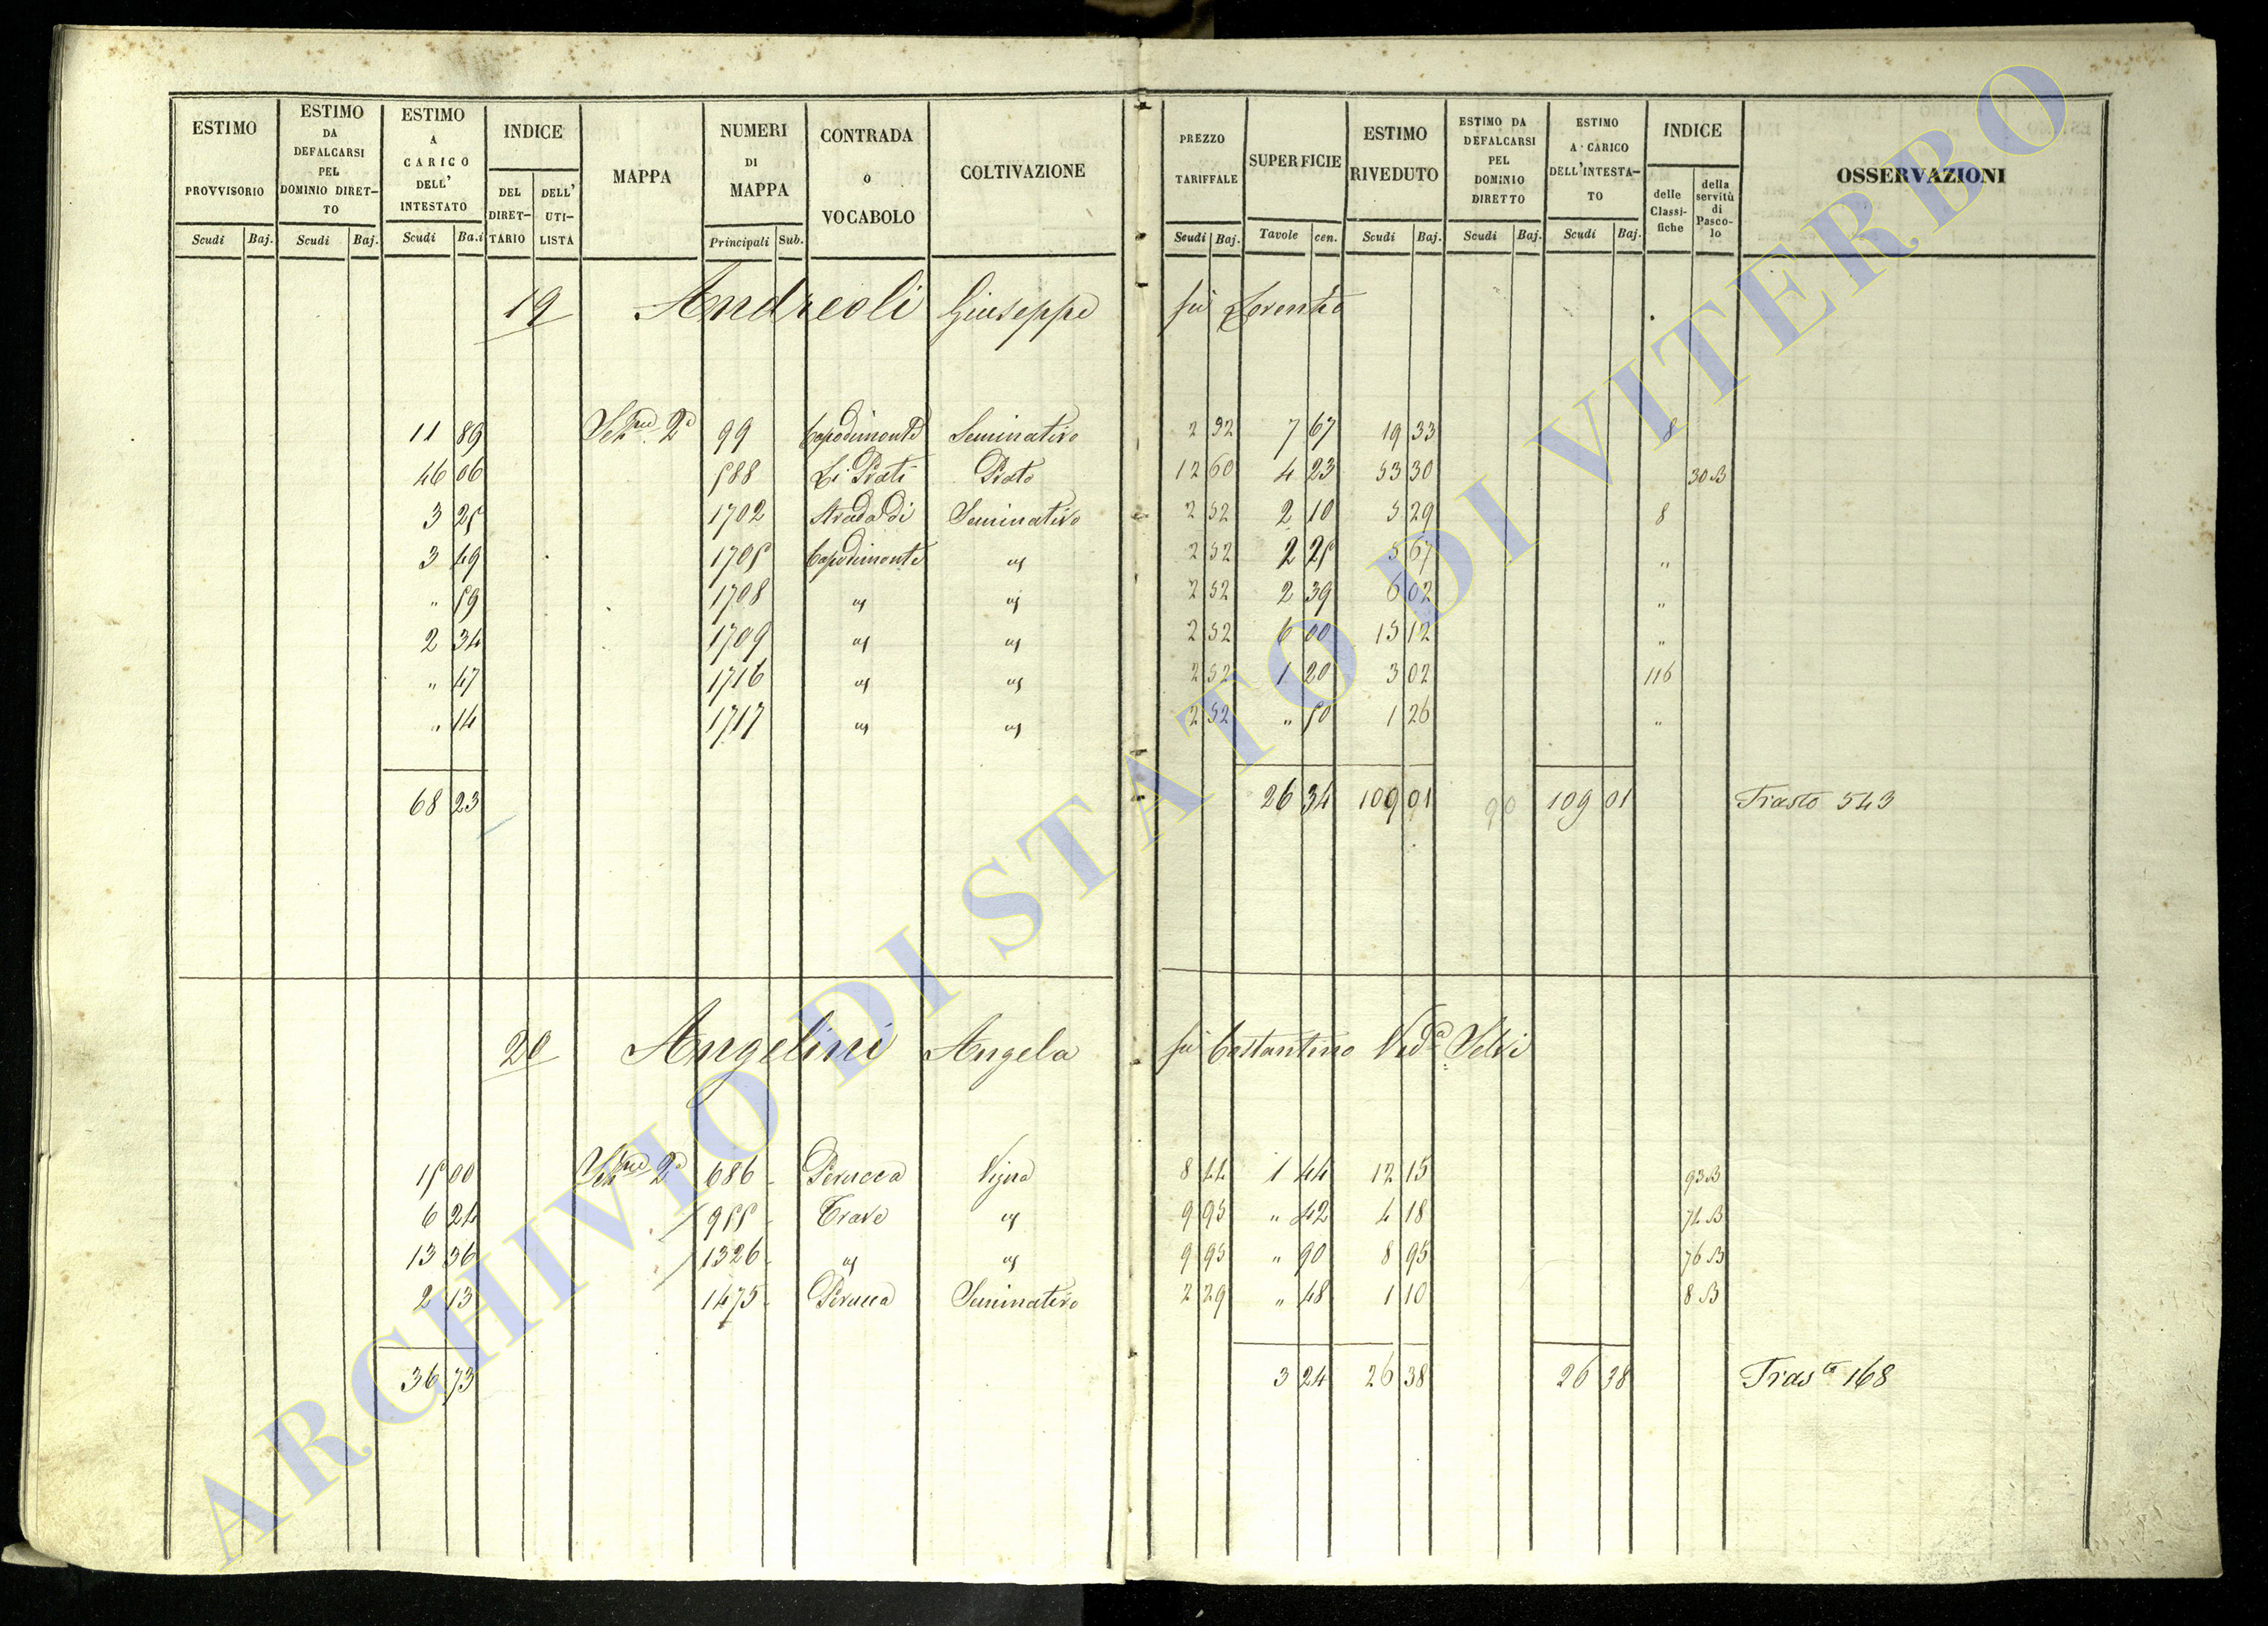 ESTIMO PROVVISORIO Scudi Baj.
ESTIMO DA DEFALCARSI PEL DOMINIO DIRET-TO Scudi Baj.
ESTIMO A CARICO DELL' INTESTATO Scudi Ba.i
INDICE DEL DIRET-TARIO DELL' UTI-LISTA
MAPPA
NUMERI DI MAPPA Principali Sub.
CONTRADA O VOCABOLO
COLTIVAZIONE
PREZZO TARIFFALE Scudi Baj.
SUPERFICIE Tavole cen.
ESTIMO RIVEDUTO Scudi Baj.
ESTIMO DA DEFALCARSI PEL DOMINIO DIRETTO Scudi Baj.
ESTIMO A CARICO DELL'INTESTA-TO Scudi Baj.
INDICE delle Classi-fiche della servitù di Pasco-lo
OSSERVAZIONI
19 Andreoli Giuseppe fù Lorenzo
11 89 Sez.ne 2a 99 Capodimonte Seminativo 2 52 7 67 19 33 8
46 06 588 Li Prati Prato 12 60 4 23 53 30 30 B
3 25 1702 Strada di Seminativo 2 52 2 10 5 29 8
3 49 1705 Capodimonte " 2 52 2 25 5 67 "
" 59 1708 " " 2 52 2 39 6 02 "
2 34 1709 " " 2 52 6 00 15 12 "
" 47 1716 " " 2 52 1 20 3 02 116
" 14 1717 " " 2 52 " 50 1 26 "
68 23 26 34 109 01 90 109 01 Trasto 543
20 Angelini Angela fù Costantino Ved.a Selvi
15 00 Sez.ne 2a 686 Perucca Vigna 8 44 1 44 12 15 93 B
6 24 955 Trave " 9 95 " 42 4 18 74 B
13 36 1326 " " 9 95 " 90 8 95 76 B
2 13 1475 Perucca Seminativo 2 29 " 48 1 10 8 B
36 73 3 24 26 38 26 38 Trasto 168
ARCHIVIO DI STATO DI VITERBO